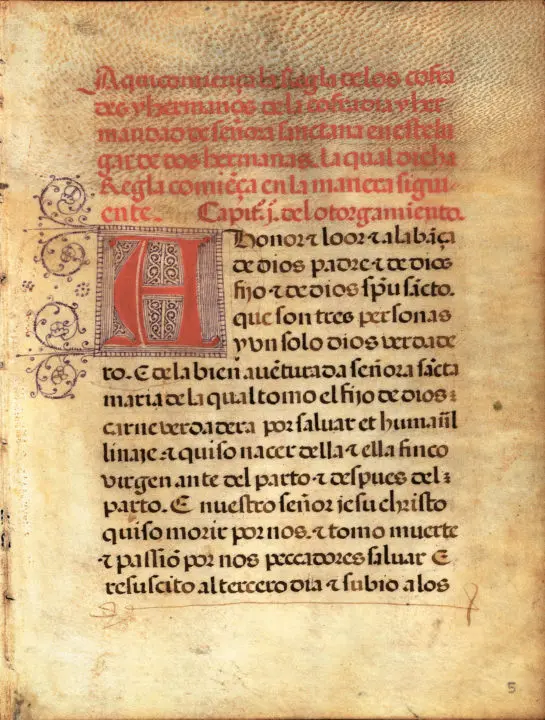 Aqui comiença la Regla de los cofra
des y hermanos de la cofradia y her
mandad de señora sanctana en este lu
gar de dos hermanas. La qual dicha
Regla comiẽça en la manera sigui-
ente. Capit̃. j. del otorgamiento.
A honor ⁊ loor ⁊ alabãça
de dios padre ⁊ de dios
fijo ⁊ de dios sp̃u sãcto.
que son tres personas
y vn solo dios verdade
ro. E de la bien auẽturada señora sãcta
maria de la qual tomo el fijo de dios
carne verdadera por saluar et humañl
linaje ⁊ quiso nacer della ⁊ ella finco
virgen ante del parto ⁊ despues del
parto. E nuestro señor jesu christo
quiso morir por nos. ⁊ tomo muerte
⁊ passiõ por nos peccadores saluar E
resuscito al tercero dia ⁊ subio a los
5